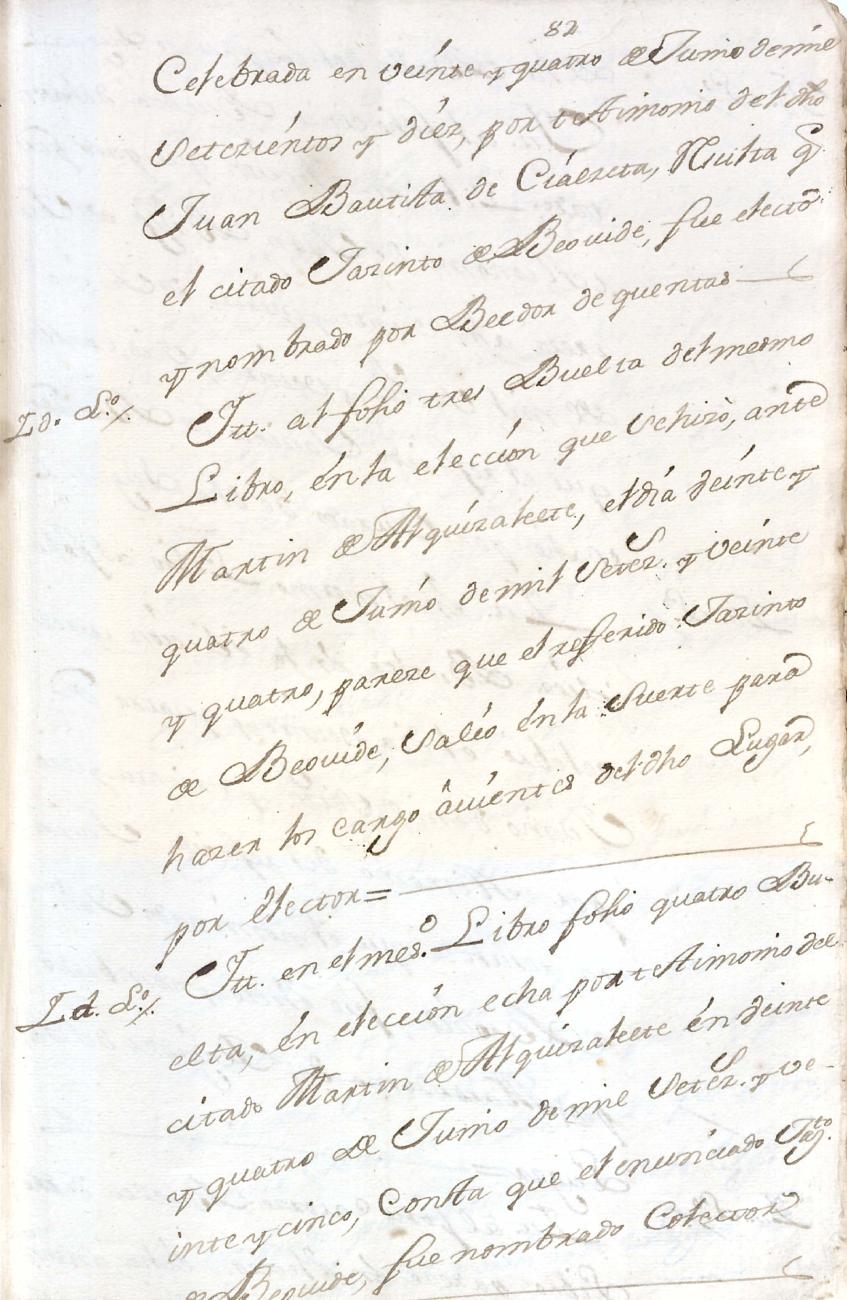 82
Celebrada en veínte y quatro de Junio de mil
setezíentos y díez, por testimonio del dho
Juan Bautista de Cíaereta, Rusulta q̃
el citado Jazinto de Beovide, fue electo
y nombrado por Beedor de quentas
Id. L.º/.
Itt. al folio tres Buelta del mesmo
Libro, én la elección que se hizò, ante
Martin de Alquízaleete, el día veínte y
quatro de Junío de mil setez.s y veínte
y quatro, pareze que el refferido Jazinto
de Beovíde, salío én la suerte para
hazer los cargo auíentes del dho Lugar,
por élector=
Id. L.º/.
Itt. en el mes.º Libro folio quatro Bu-
elta, én elección echa por testimonio del
citado Martin de Alquízaleete én veinte
y quatro de Junio de mil setez.s y ve-
inte y cinco, Consta que el enuncíado Jaz.to
de Beovide, fue nombrado Colector